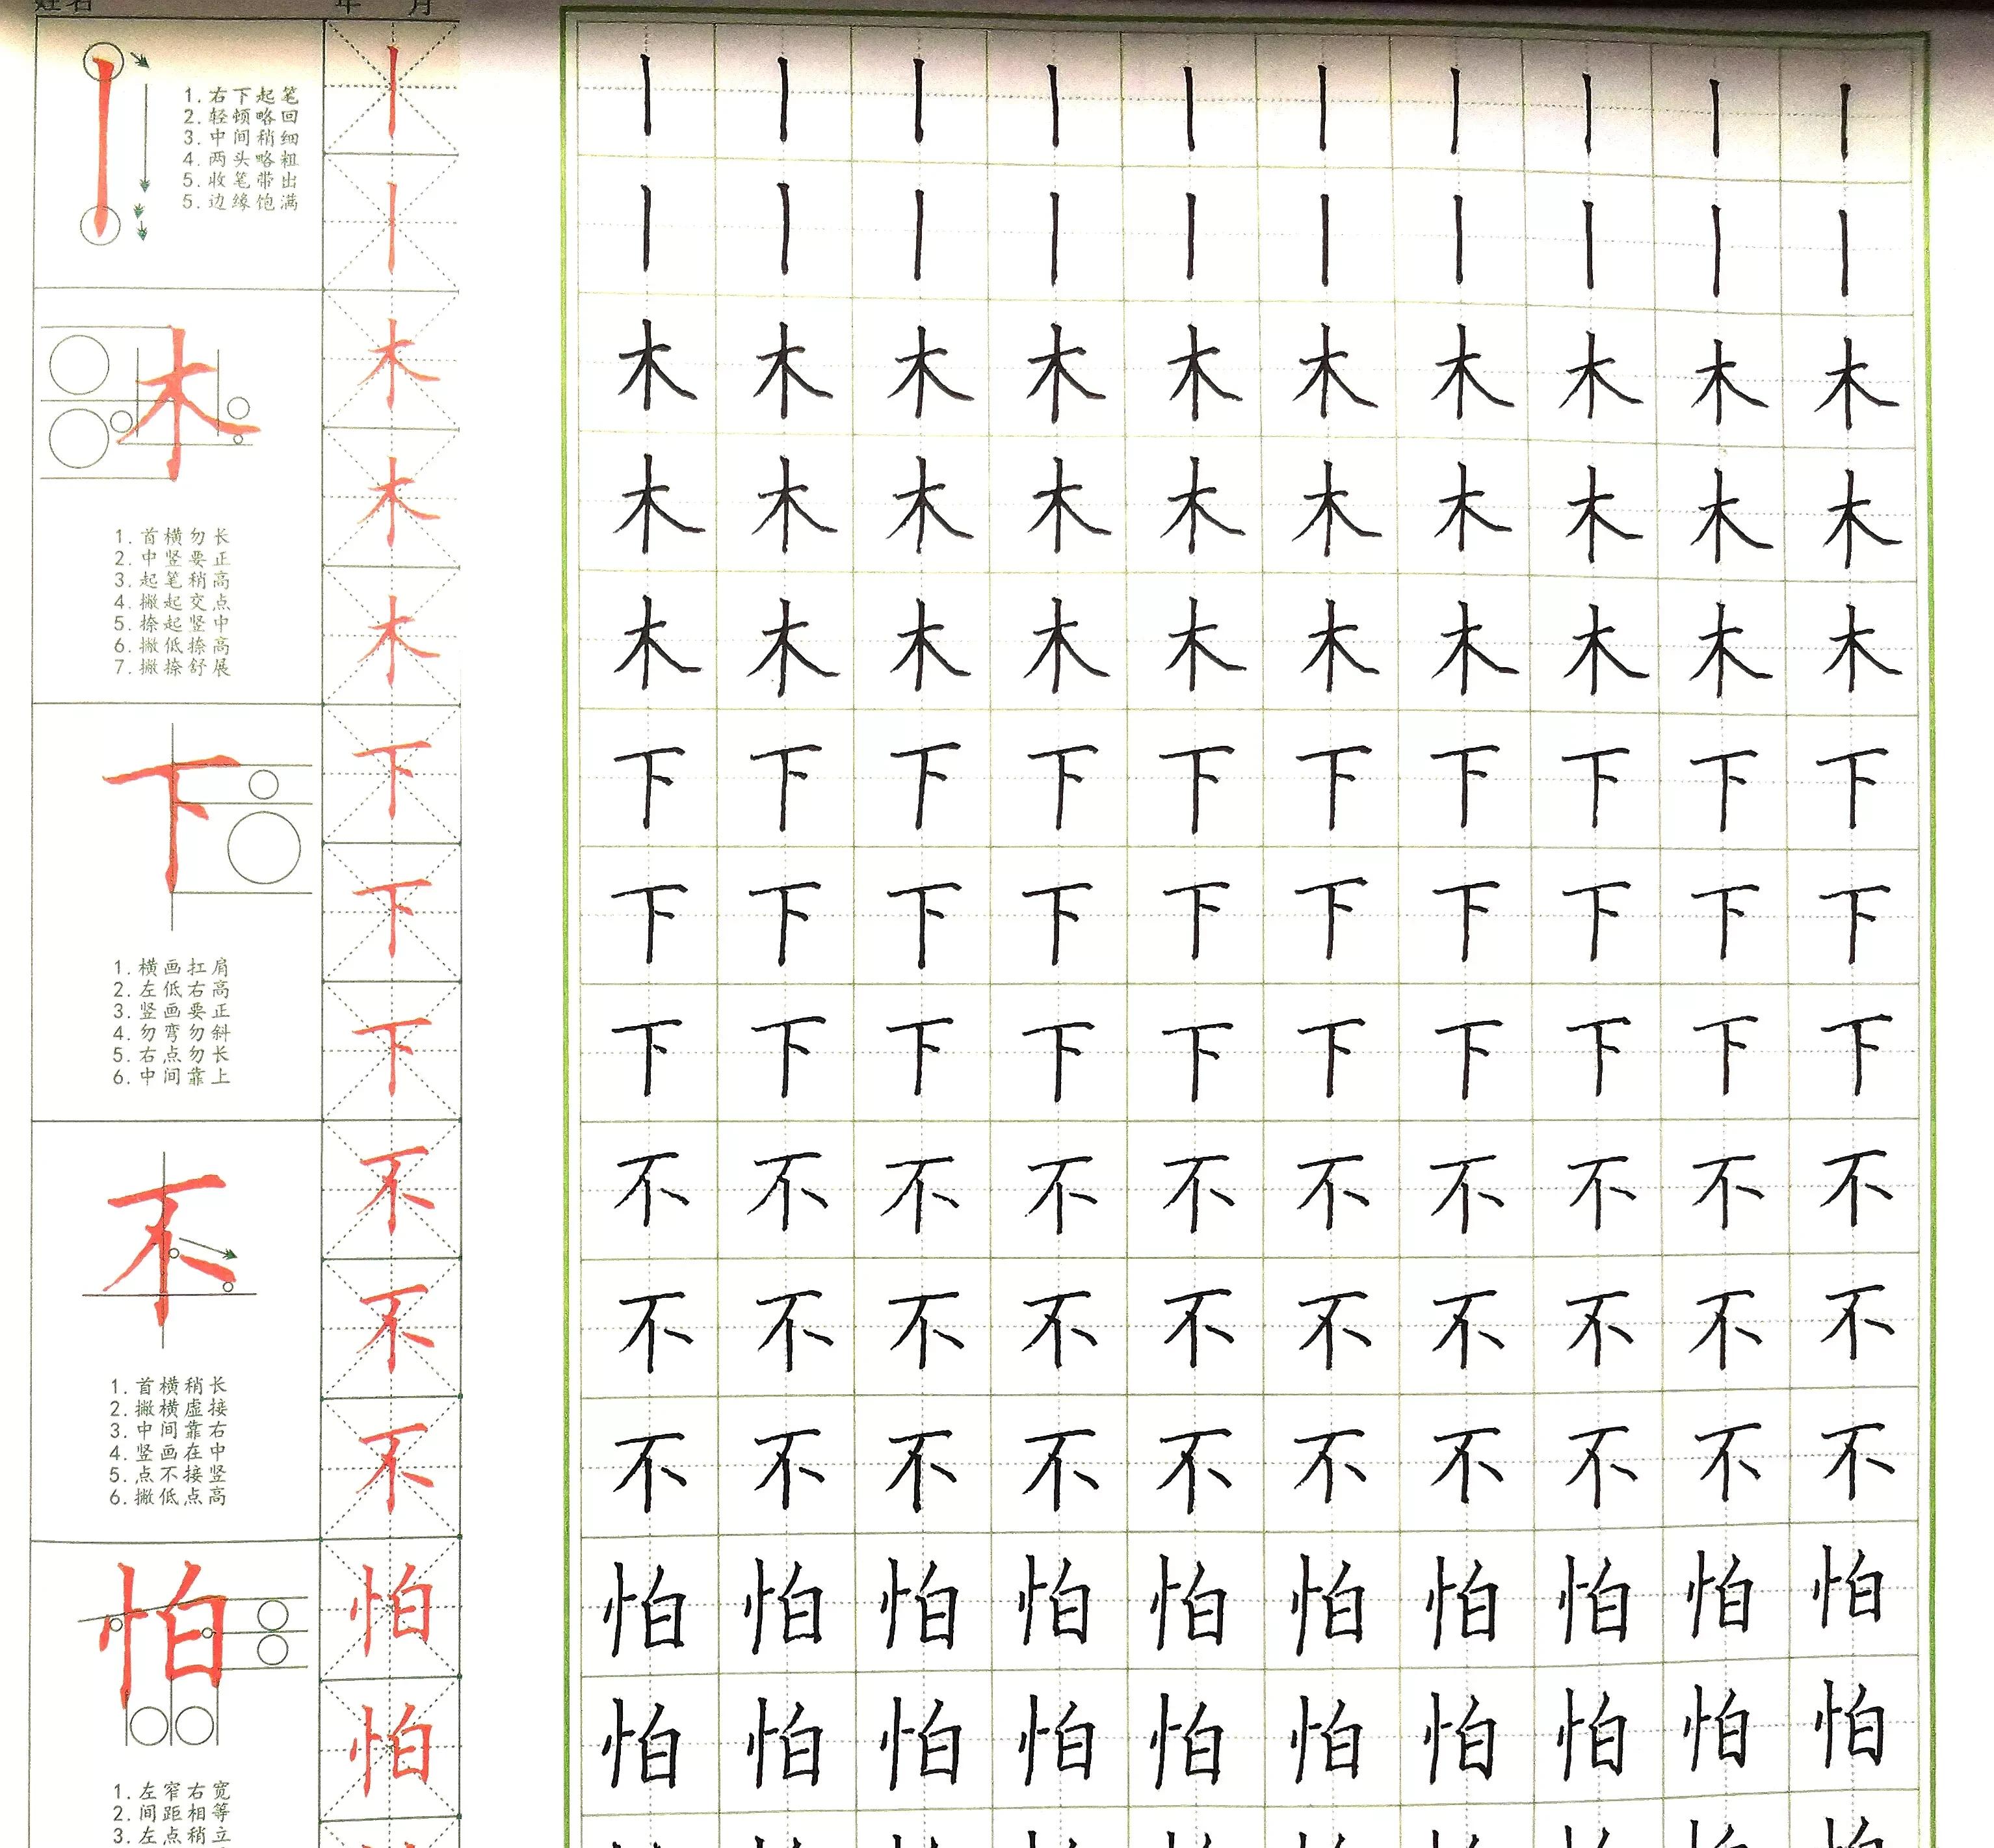 姓名 年 月
1.右下起笔
2.轻顿略回
3.中间稍细
4.两头略粗
5.收笔带出
5.边缘饱满
丨 丨 丨 丨 丨 丨 丨 丨 丨 丨 丨
丨 丨 丨 丨 丨 丨 丨 丨 丨 丨 丨
木
1.首横勿长
2.中竖要正
3.起笔稍高
4.撇起交点
5.捺起竖中
6.撇低捺高
7.撇捺舒展
木 木 木 木 木 木 木 木 木 木 木
木 木 木 木 木 木 木 木 木 木 木
木 木 木 木 木 木 木 木 木 木 木
下
1.横画扛肩
2.左低右高
3.竖画要正
4.勿弯勿斜
5.右点勿长
6.中间靠上
下 下 下 下 下 下 下 下 下 下 下
下 下 下 下 下 下 下 下 下 下 下
下 下 下 下 下 下 下 下 下 下 下
不
1.首横稍长
2.撇横虚接
3.中间靠右
4.竖画在中
5.点不接竖
6.撇低点高
不 不 不 不 不 不 不 不 不 不 不
不 不 不 不 不 不 不 不 不 不 不
不 不 不 不 不 不 不 不 不 不 不
怕
1.左窄右宽
2.间距相等
3.左点稍立
怕 怕 怕 怕 怕 怕 怕 怕 怕 怕 怕
怕 怕 怕 怕 怕 怕 怕 怕 怕 怕 怕